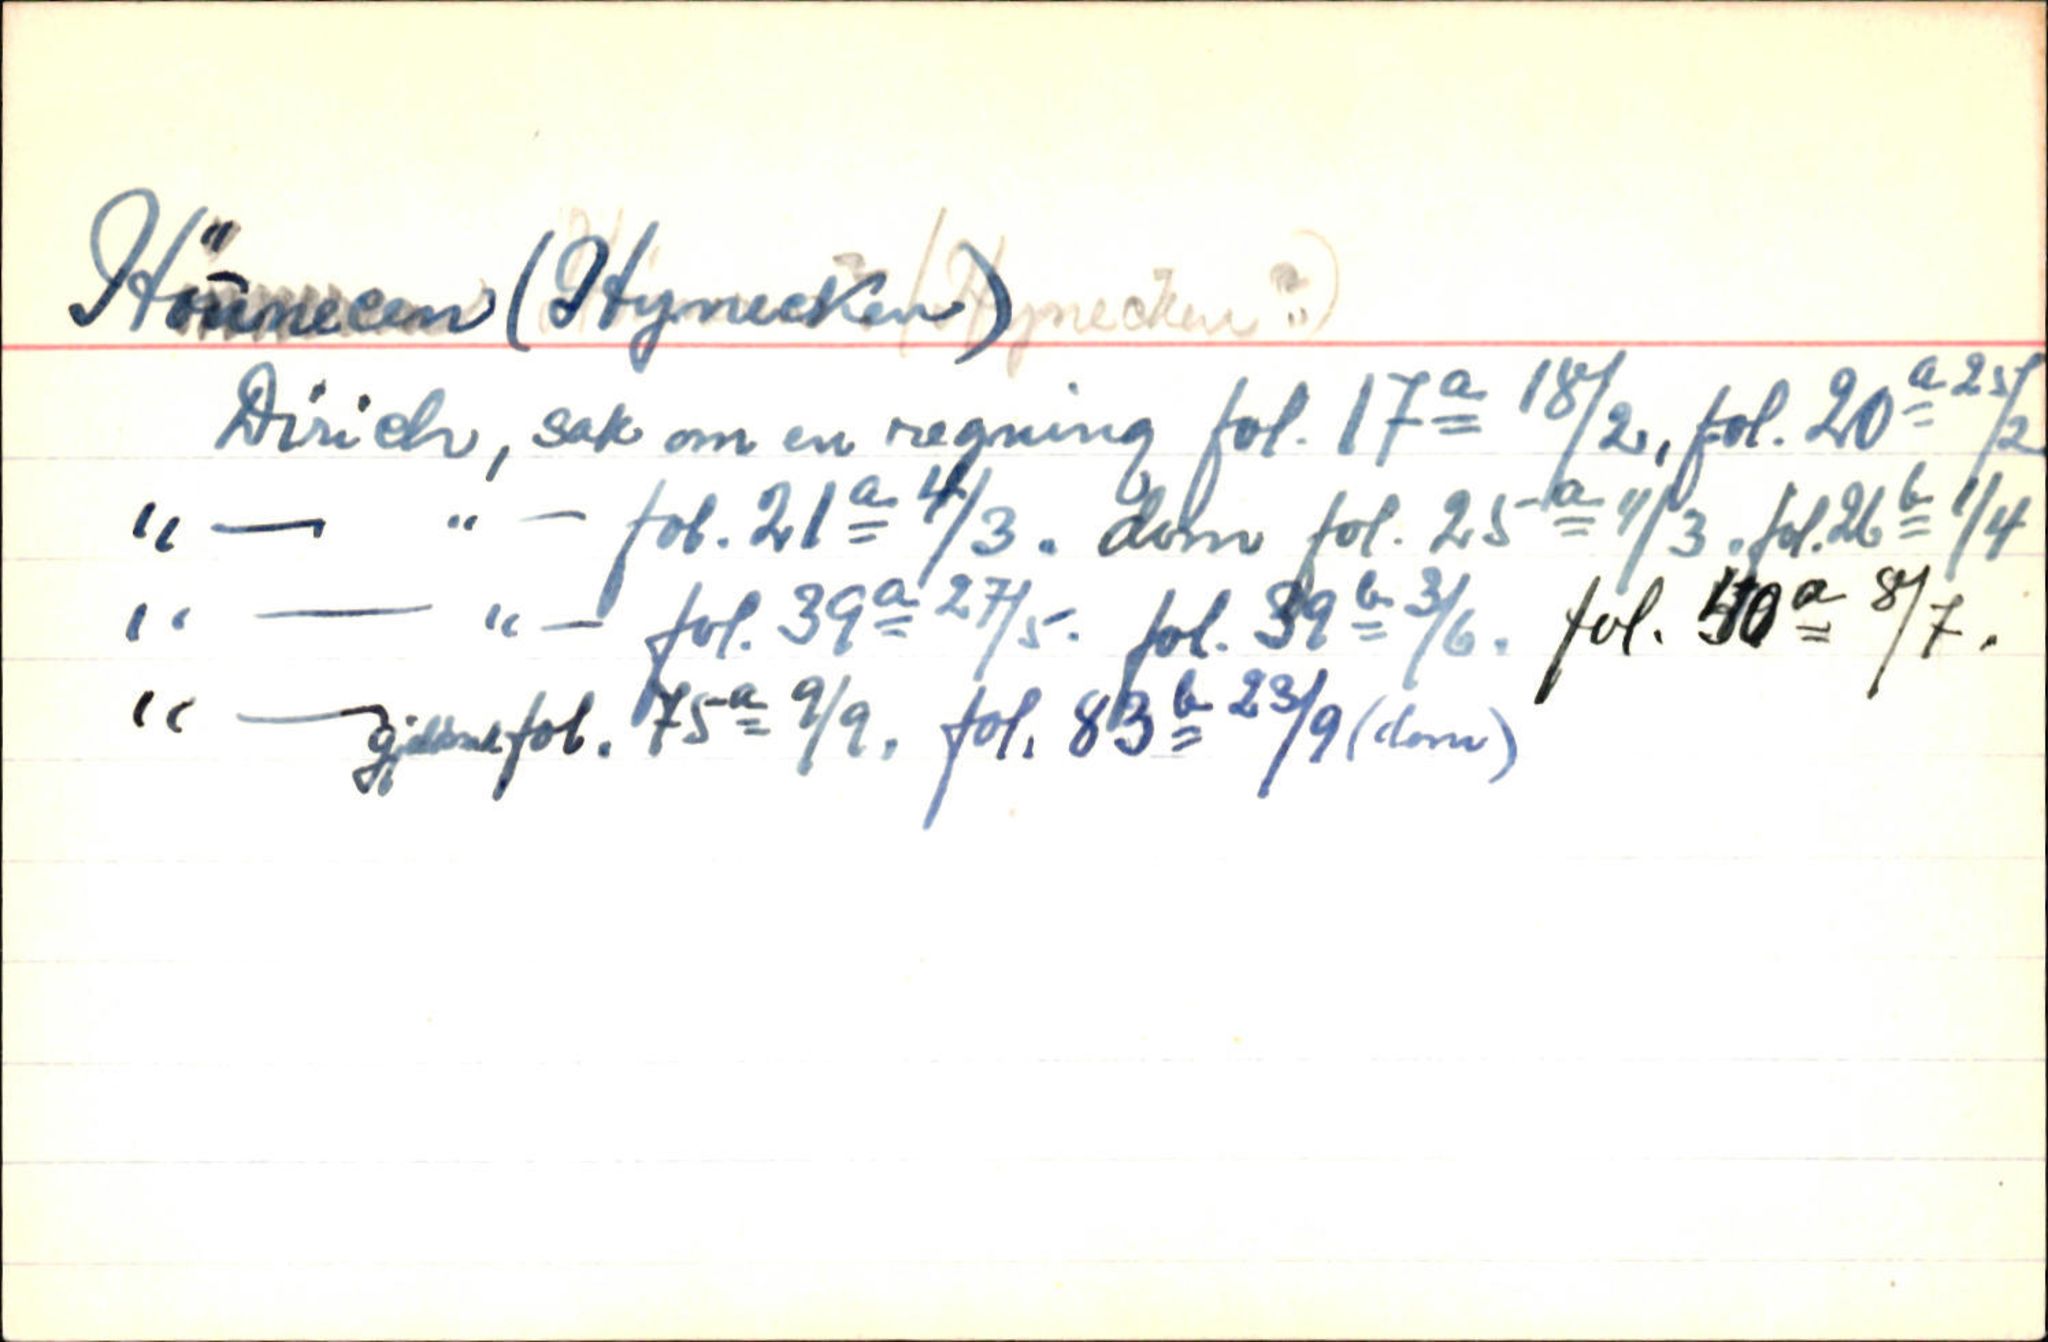 Hönnecen (Hynecken)
Dirich, sak om en regning fol. 17a 18/2, fol. 20a 25/2
" — " — fol. 21a 4/3. dom fol. 25a 11/3. fol. 26b 1/4
" — " — fol. 39a 27/5. fol. 39b 3/6. fol. 50a 8/7.
" — gjeldssak fol. 75a 9/9. fol. 83b 23/9 (dom)